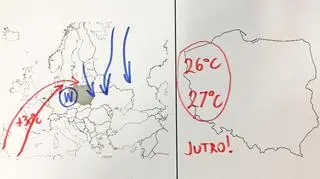 +30°C
W
26°C
27°C
JUTRO!